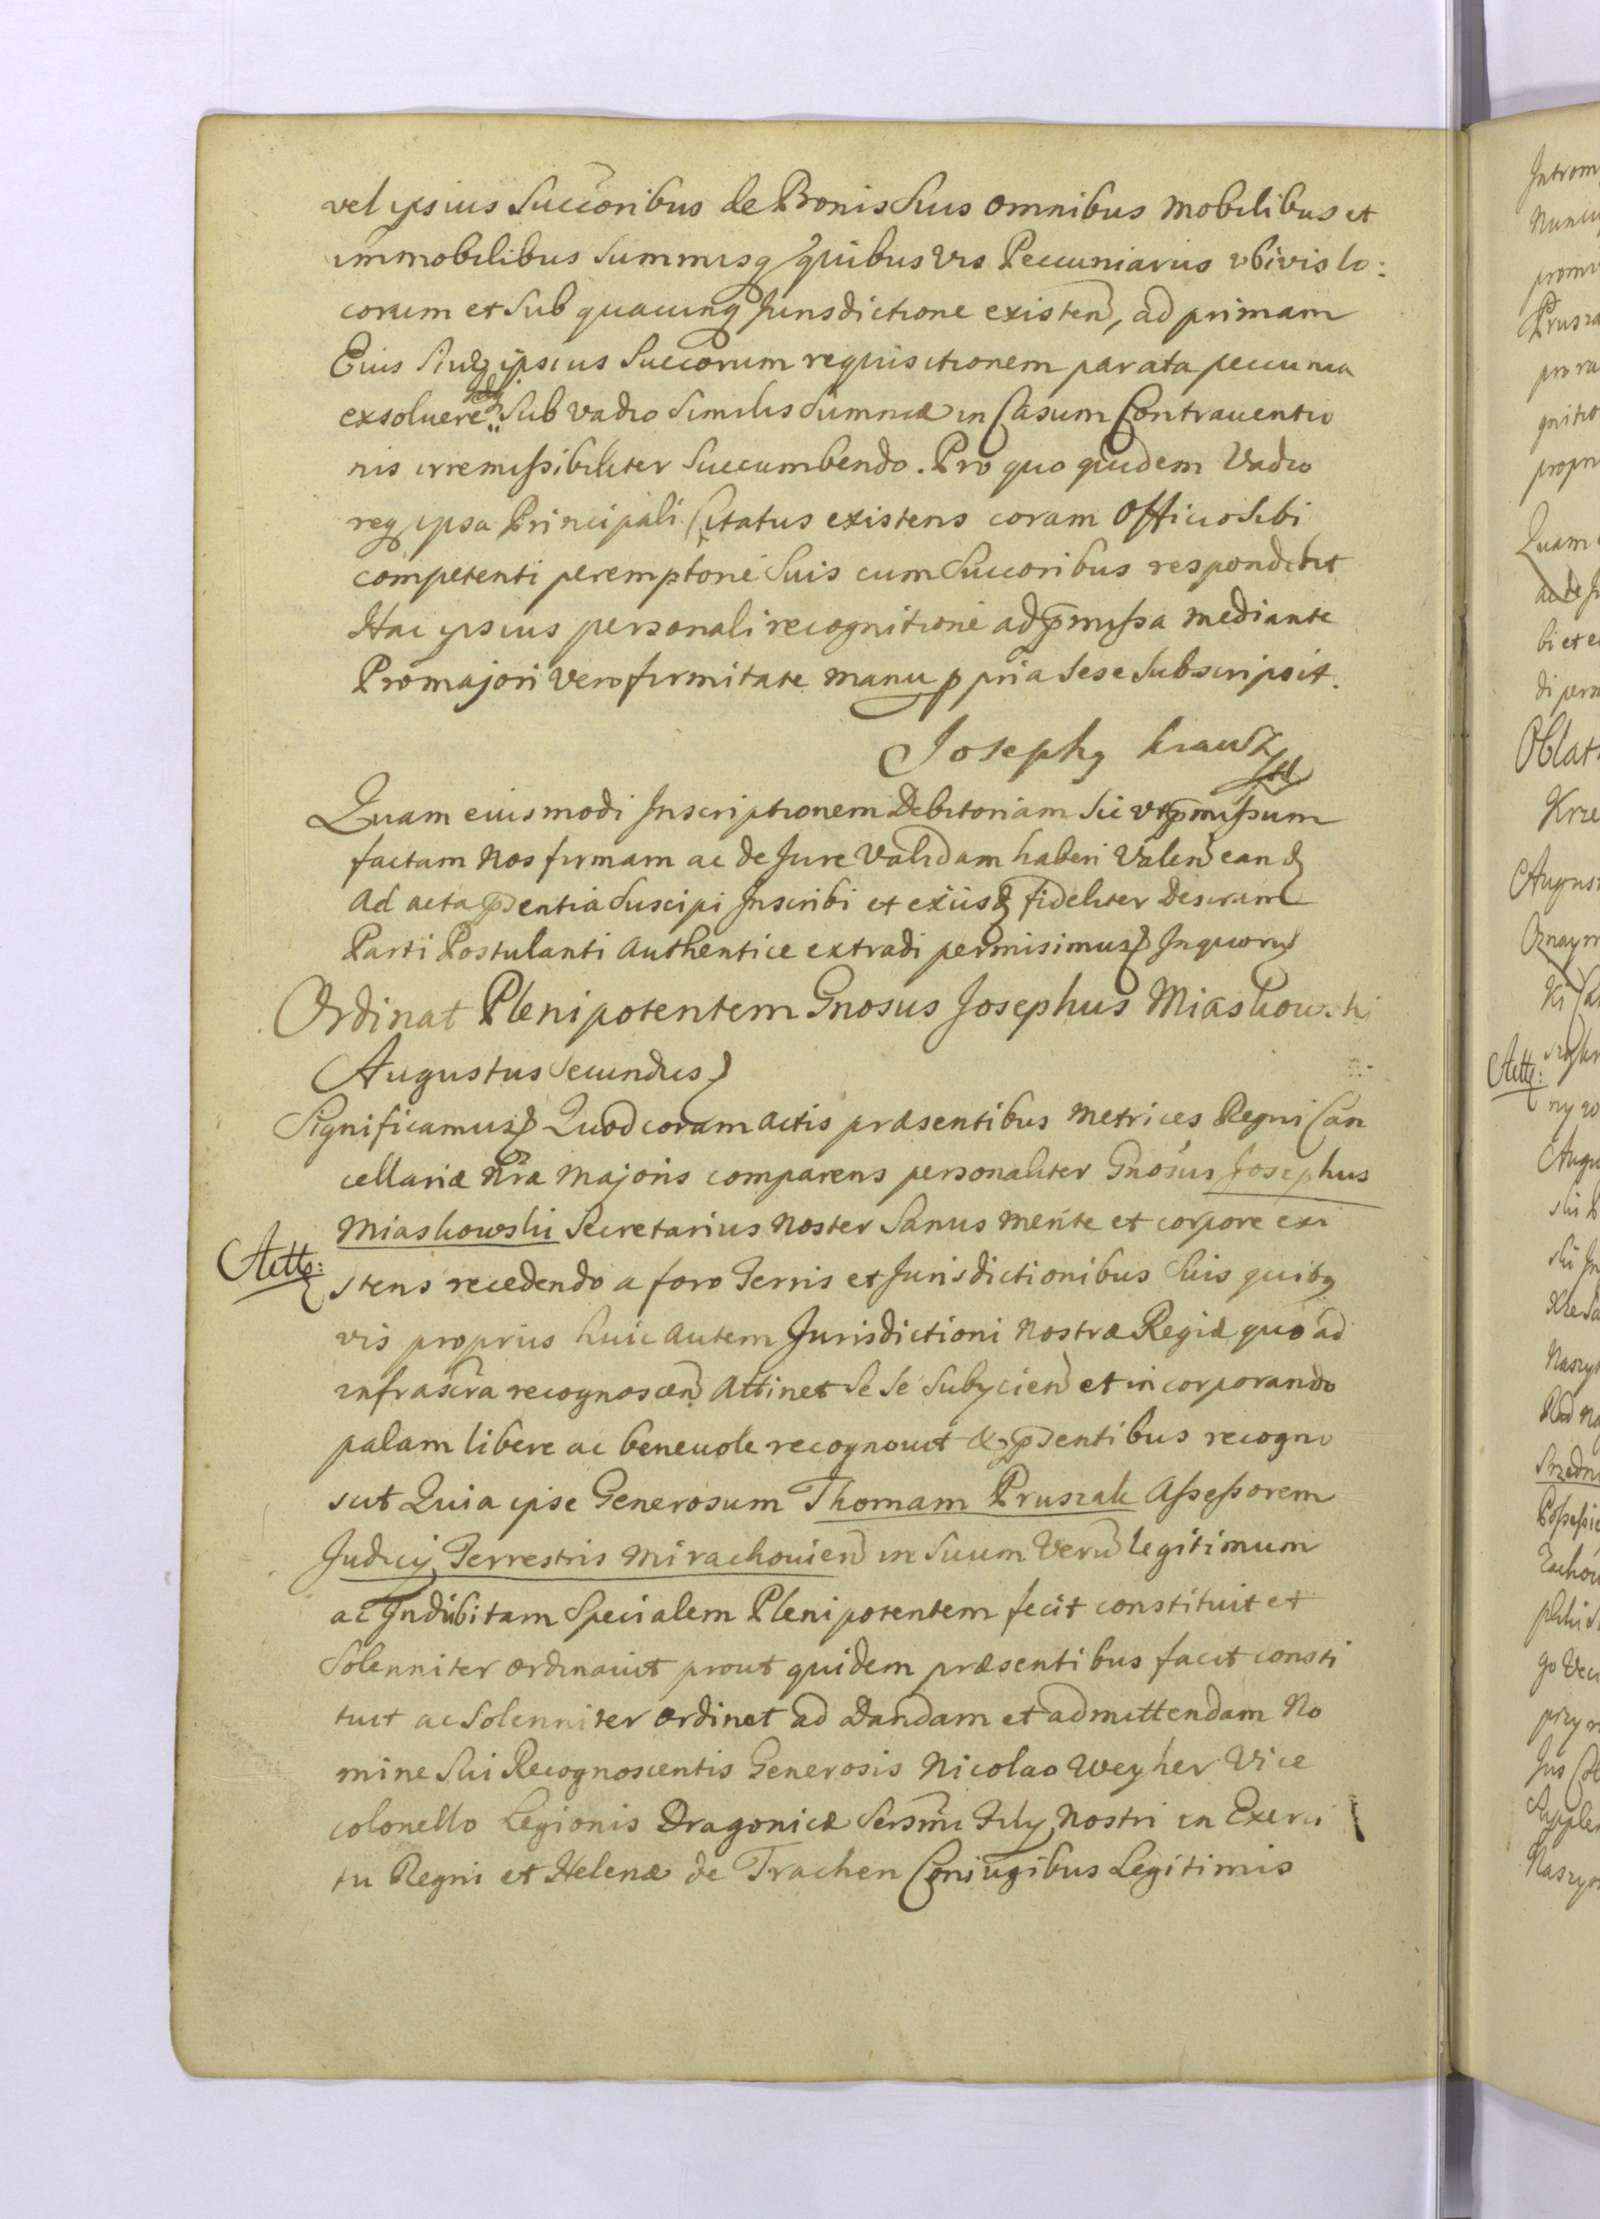 vel ipsius Succoribus de Bonis Suis omnibus mobilibus et
immobilibus Summisq quibus vis Peccuniarius ubivis lo:
corum et Sub quacunq Jurisdictione existen, ad primam
Eius Siue ipsius Succorum requisitionem parata peccunia
exsoluere Sub vadio Similis Summæ in Casum Contrauentio
nis irremissibiliter Succumbendo. Pro quo quidem Vadio
req ipsa Principali Citatus existens coram Officio Sibi
competenti peremptorie Suis cum Succoribus respondebit
Hac ipsius personali recognitione ad pmissa mediante
Pro majori vero firmitate manu ppria Sese Subscripsit.
Josephq Krausz
Quam eiusmodi Inscriptionem Debitoriam Sic ut pmissum
factam Nos firmam ac de Jure Validam haberi Valen eand
Ad acta pdentia Suscipi Inscribi et exiisd fideliter Descram
Parti Postulanti Authentice extradi permisimus Inquoru
Ordinat Plenipotentem Gnosus Josephus Miaskowski
Augustus Secundus
Significamus Quod coram actis præsentibus Metrices Regni Can
cellariæ Nræ Majoris comparens personaliter Gnosus Josephus
Miaskowski Secretarius Noster Sanus mente et corpore exi
Actt:
stens recedendo a foro Terris et Jurisdictionibus Suis quibq
vis proprius huic autem Jurisdictioni Nostræ Regiæ quo ad
infrascra recognoscen Attinet Se Se Subycien et incorporando
palam libere ac beneuole recognouit & pdentibus recogno
scit Quia ipse Generosum Thomam Pruszak Assessorem
Judicij Terrestris Mirachouien in Suum Veru legitimum
ac Indubitam Specialem Plenipotentem fecit constituit et
Solenniter ordinauit prout quidem præsentibus facit consti
tuit ac Solenniter ordinet ad Dandam et admittendam No
mine Sui Recognoscentis Generosis Nicolao Weyher Vice
colonello Legionis Dragonicæ Sersmi Filij Nostri in Exerci
tu Regni et Helenæ de Trachen Coniugibus Legitimis